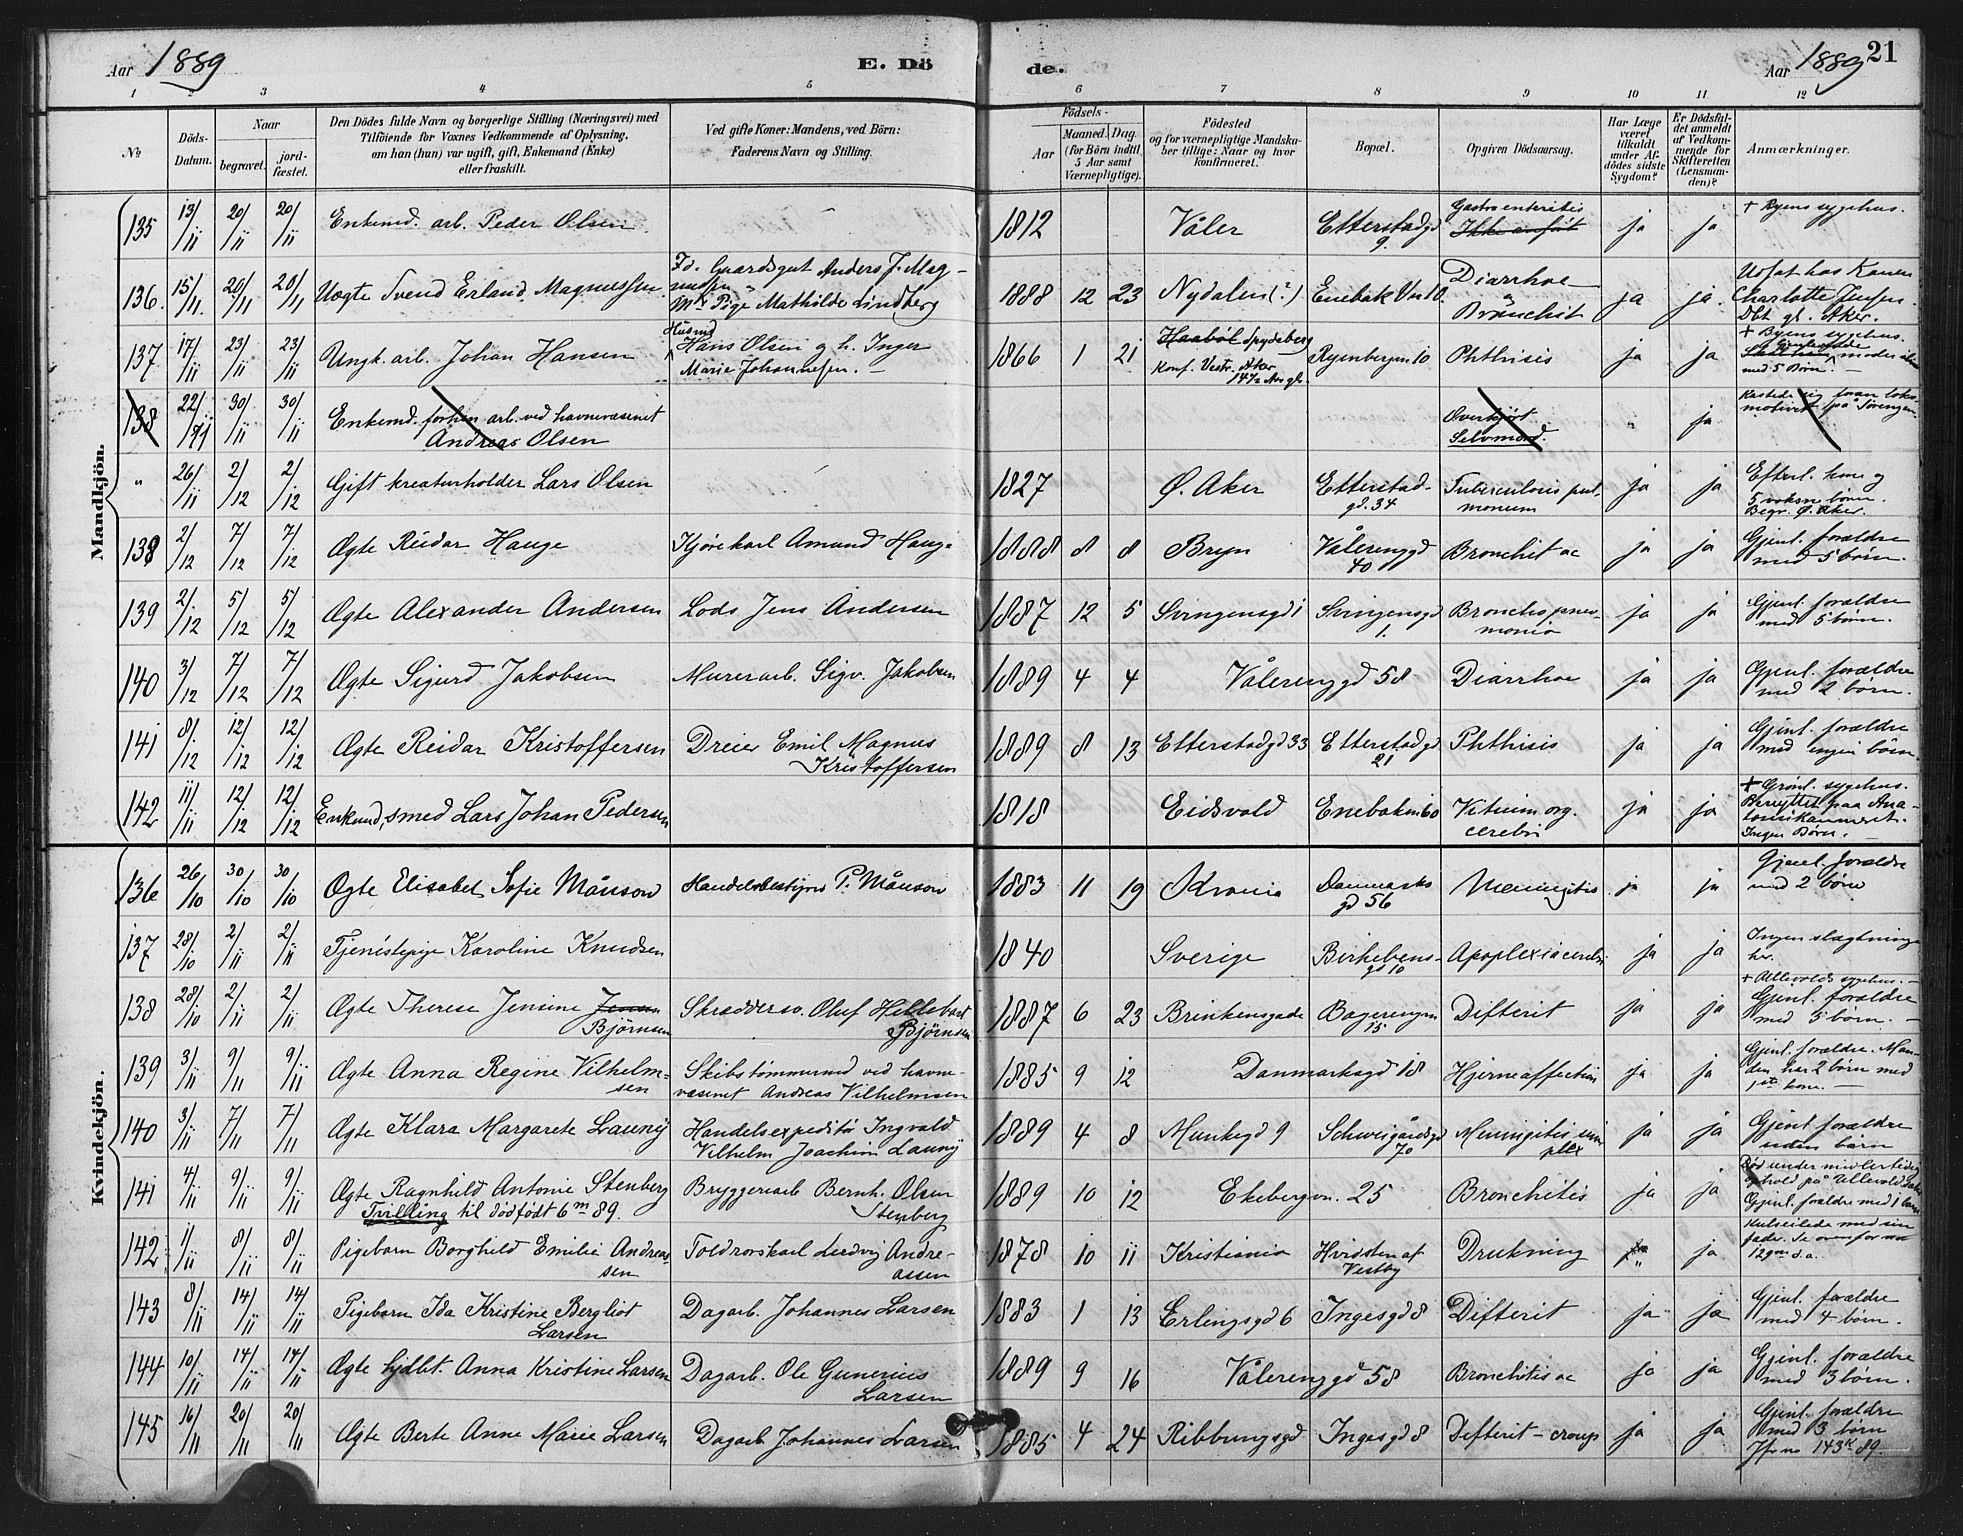 Aar 1889
E. Dö
de.
Aar 1889
21
1
2
3
4
5
6
7
8
9
10
11
12
No
Döds-Datum.
Naar
begravet.
jordfæstet.
Den Dödes fulde Navn og borgerlige Stilling (Næringsvei) med
Tilföiende for Voxnes Vedkommende af Oplysning,
om han (hun) var ugift, gift, Enkemand (Enke)
eller fraskilt.
Ved gifte Koner: Mandens, ved Börn:
Faderens Navn og Stilling.
Födsels-
Aar
Maaned.
Dag.
(for Börn indtil
5 Aar samt
Værnepligtige).
Födested
og for værnepligtige Mandskaber tillige: Naar og hvor
konfirmeret.
Bopæl.
Opgiven Dödsaarsag.
Har Læge
været
tilkaldt
under Afdödes sidste
Sygdom?
Er Dödsfaldet anmeldt
af Vedkommende for
Skifteretten
(Lensmanden)?
Anmærkninger.
Mandkjön.
135 13/11 20/11 20/11 Enkemd. arb. Peder Olsen 1812 Våler Etterstadgd 9. Gastroenteritis Ikke anført ja ja + Byens sygehus.
136. 15/11. 20/11 20/11 Uegte Svend Erland Magnussen Fd. Gaardsgut Anders J. Magnussen Mr Pige Mathilde Lindberg 1888 12 23 Nydalen (?) Enebakvn 10 Diarrhoe & Bronchit ja ja. Udsat hos Konen Charlotte Jensen. Dbt gl. Aker.
137 17/11 23/11 23/11 Ungk. arb. Johan Hansen Husmd Hans Olsen og h. Inger Marie Johannesen. 1866 1 21 Haabøl Spydeberg Konf. Vestr. Aker 14½ Aar gl. Ryenbergvn 10 Phthisis ja ja + Byens sygehus. med 5 Børn.
138 22/11 30/11 30/11 Enkemd. forhen arb. ved havnevæsenet Andreas Olsen Overkjørt. Selvmord. " ja Kastede sig foran lokomotivet på Sørengen
" 26/11 2/12 2/12 Gift kreaturholder Lars Olsen 1827 Ø. Aker Etterstadgd. 34 Tuberculosis pulmonum ja ja Efterl. kone og 5 voksn børn. Begr. Ø. Aker.
138 2/12 7/12 7/12 Ægte Reidar Hauge Kjørekarl Amund Hauge 1888 8 8 Bryn Vålerenggd 40 Bronchit ac ja ja Gjenl. forældre med 5 børn.
139 2/12 5/12 5/12 Ægte Alexander Andersen Lods Jens Andersen 1887 12 5 Svingensgd 1 Svingensgd 1. Bronchopneumonia ja ja Gjenl. forældre med 5 børn.
140 3/12 7/12 7/12 Ægte Sigurd Jakobsen Murerarb. Sigv. Jakobsen 1889 4 4 Vålerenggd 58 Diarrhoe ja ja Gjenl. forældre med 2 børn.
141 8/12 12/12 12/12 Ægte Reidar Kristoffersen Dreier Emil Magnus Kristoffersen 1889 8 13 Etterstadgd 33 Etterstadgd 21 Phthisis ja ja Gjenl. forældre med ingen børn.
142 11/11 12/12 12/12 Enkemd, smed Lars Johan Pedersen 1818 Eidsvold Enebakvn 60 Vitium org. cerebri ja ja + Grønl. sygehus. Benyttet paa Anatomikammeret. Ingen Børn.
Kvindekjön.
136 26/10 30/10 30/10 Ægte Elisabet Sofie Månson Handelsbestyrer P. Månson 1883 11 19 Kr.ania Danmarksgd 56 Meningitis ja ja Gjenl. forældre med 2 børn
137 28/10 2/11 2/11 Tjenestepige Karoline Knudsen 1840 Sverige Birkebensgd 10 Apoplexia cerebri ja ja Ingen slægtninge her.
138 28/10 2/11 2/11 Ægte Therese Jensine Jensen Bjørnsen Skræddersv. Oluf Hellebart Bjørnsen 1887 6 23 Brinkensgade Bagerengen 15 Difterit ja ja + Ullevolds sygehus. Gjenl. forældre med 5 børn.
139 3/11 9/11 9/11 Ægte Anna Regine Vilhelmsen Skibstømmermd ved havnevæsenet Andreas Vilhelmsen 1885 9 12 Danmarksgd 18 Hjerneaffection ja ja Gjenl. forældre. Manden har 2 børn med 1ste kone.
140 3/11 7/11 7/11 Ægte Klara Margarete Launÿ Handelsexpeditør Ingvald Vilhelm Joachim Launÿ 1889 4 8 Munkegd 9 Schweigårdsgd 70 Meningitis simplex ja ja Gjenl forældre uden børn
141 4/11 9/11 9/11 Ægte Ragnhild Antonie Stenberg Tvilling til dødfødt 6m 89. Bryggeriarb Bernh. Olsen Stenberg 1889 10 12 Ekebergvn. 25 Bronchitis ja ja Død under midlertidig ophold på Ullevoldsveien Gjenl. forældre med 1 barn
142 1/11 8/11 8/11 Pigebarn Borghild Emilie Andreassen Toldrorskarl Ludvig Andreassen 1878 10 11 Kristiania Hvidsten af Vestby Drukning " ja Kulseilede med sin fader. Se ovenfor no 129m d.a.
143 8/11 14/11 14/11 Pigebarn Ida Kristine Bergliot Larsen Dagarb. Johannes Larsen 1883 1 13 Erlingsgd 6 Ingesgd 8 Difterit ja ja Gjenl. forældre med 4 børn.
144 10/11 14/11 14/11 Ægte hjdbt. Anna Kristine Larsen Dagarb. Ole Gunerius Larsen 1889 9 16 Vålerenggd 58 Bronchitis ac ja ja Gjenl. forældre med 3 børn.
145 16/11 20/11 20/11 Ægte Berte Anne Marie Larsen Dagarb Johannes Larsen 1885 4 24 Ribbungsgd Ingesgd 8 Difterit-croup ja ja Gjenl. forældre med 3 børn Jfr no 143K 89.